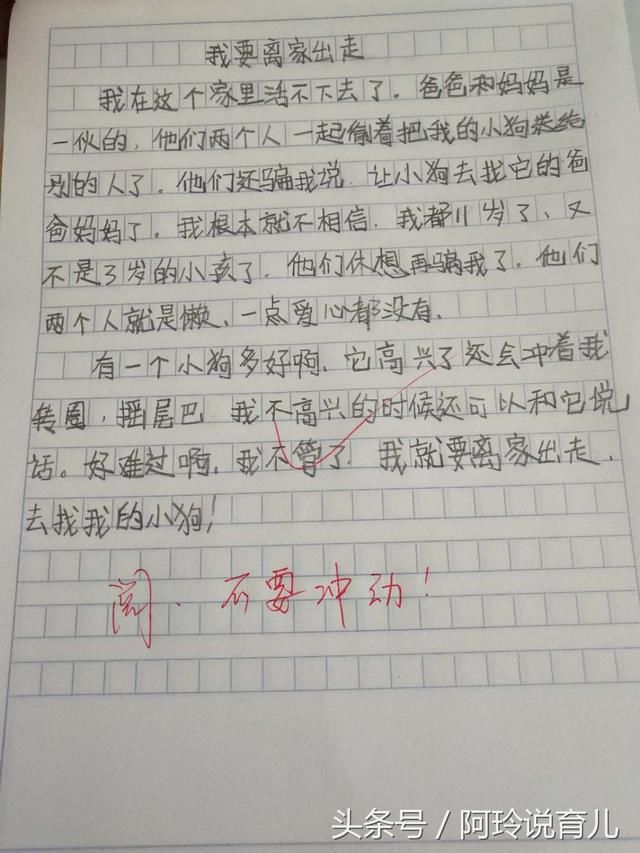 我要离家出走
我在这个家里活不下去了。爸爸和妈妈是
一伙的,他们两个人一起偷着把我的小狗送给
别的人了。他们还骗我说,让小狗去找它的爸
爸妈妈了。我根本就不相信,我都11岁了、又
不是3岁的小孩了,他们休想再骗我了。他们
两个人就是懒,一点爱心都没有.
有一个小狗多好啊,它高兴了还会冲着我
转圈,摇尾巴 我不高兴的时候还可以和它说
话。好难过啊,我不管了,我就要离家出走,
去找我的小狗!
阅、不要冲动!
头条号/阿玲说育儿